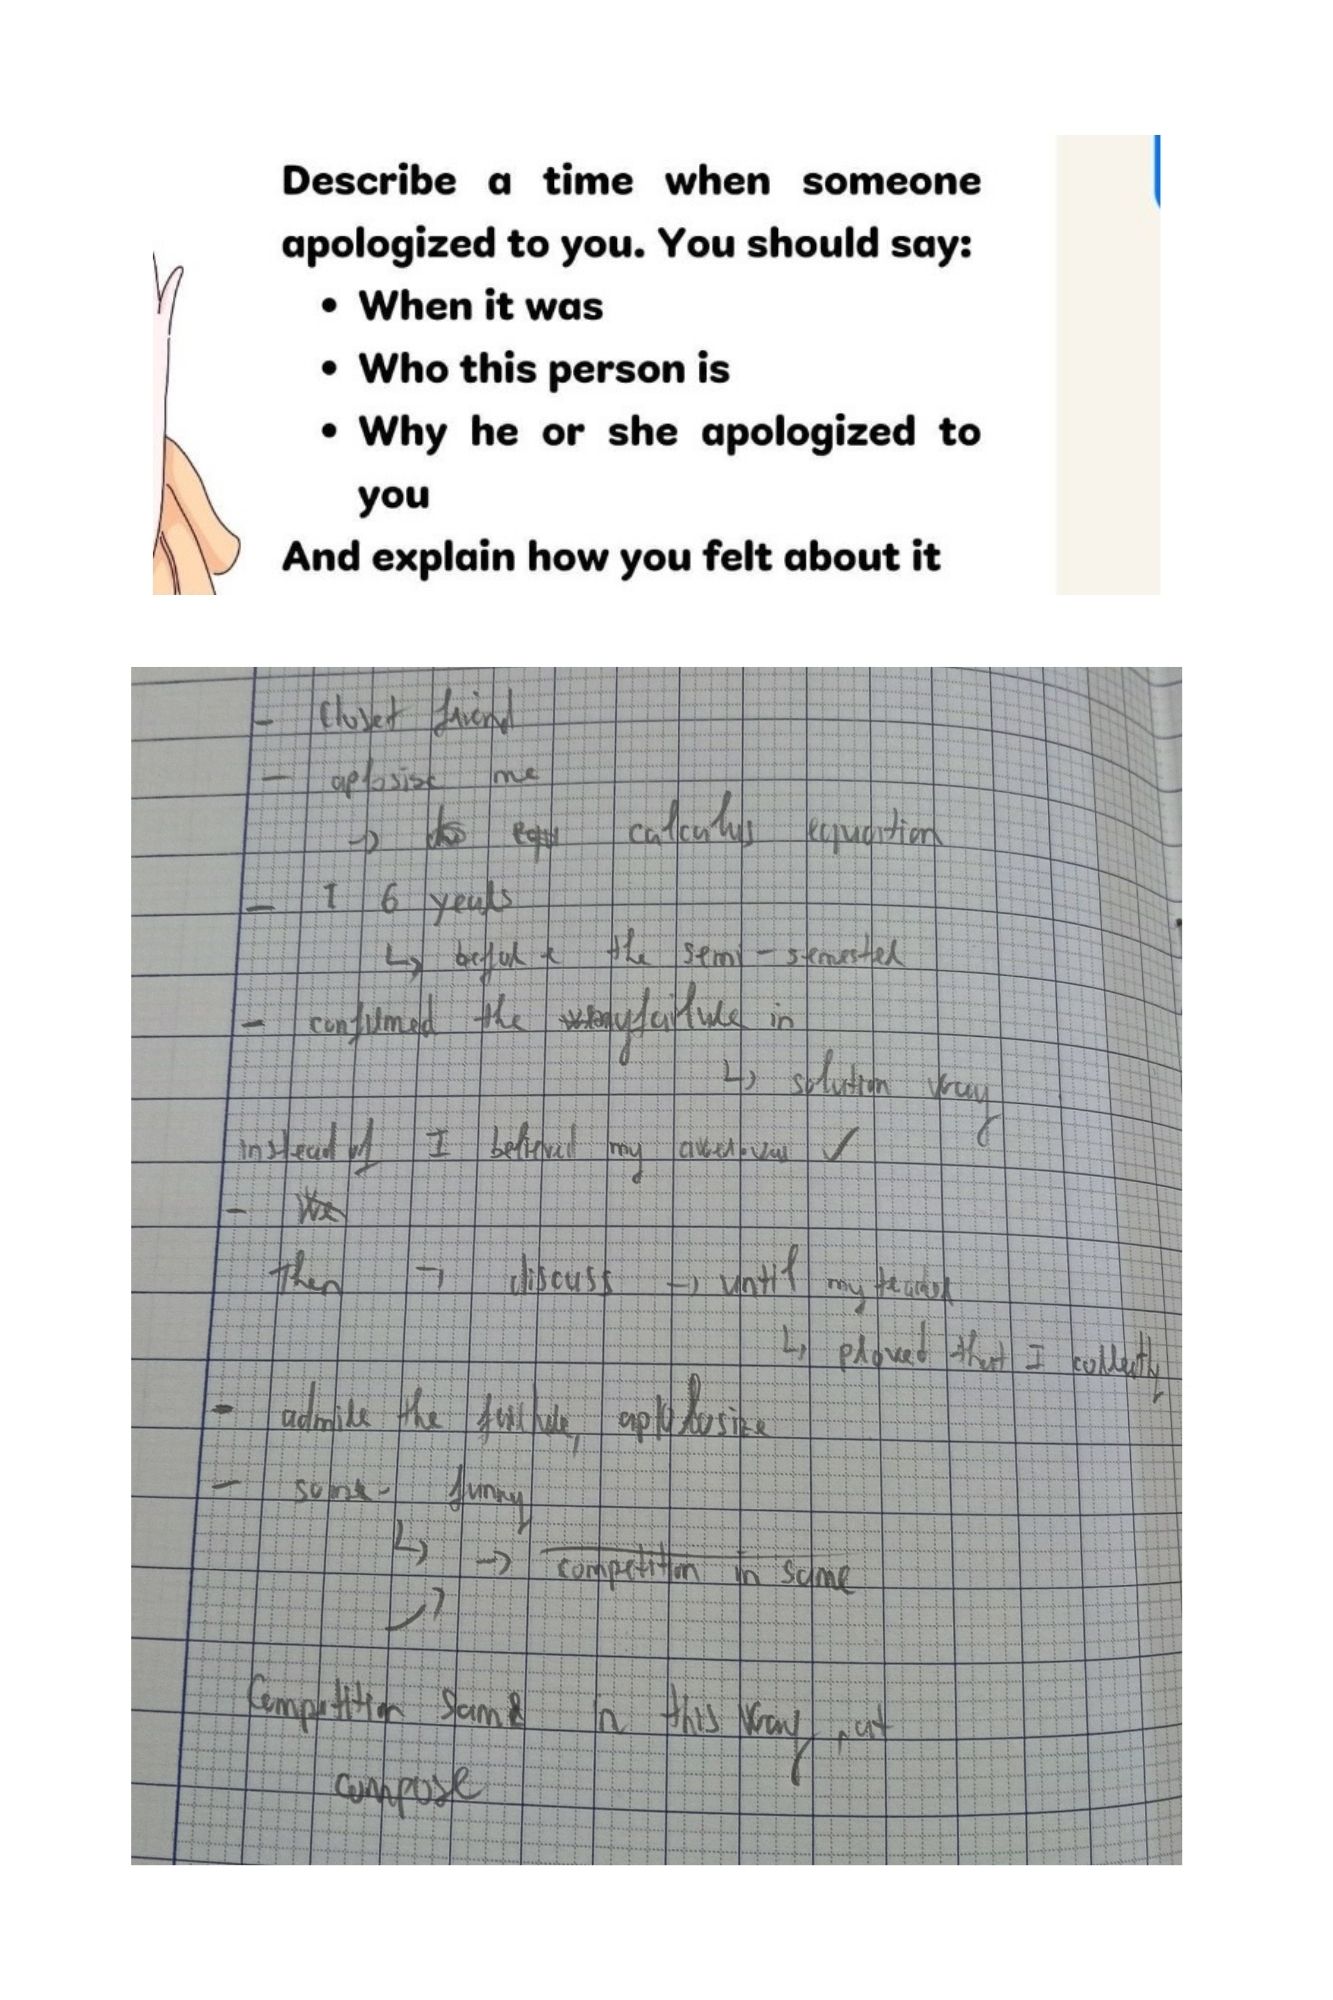 Describe a time when someone
apologized to you. You should say:
• When it was
• Who this person is
• Why he or she apologized to
you
And explain how you felt about it
- closet friend
- aplosize me
→ calculus equation
- I 6 years
↳ the semi-semester
- confirmed the failure in
↳ solution way
instead of I believed my ✓
- We
then → discuss → until my teacher
↳ proved that I correctly
- admite the failure, aplolosize
- some- funny
↳ → competition in same
Competition same in this way, at
compose